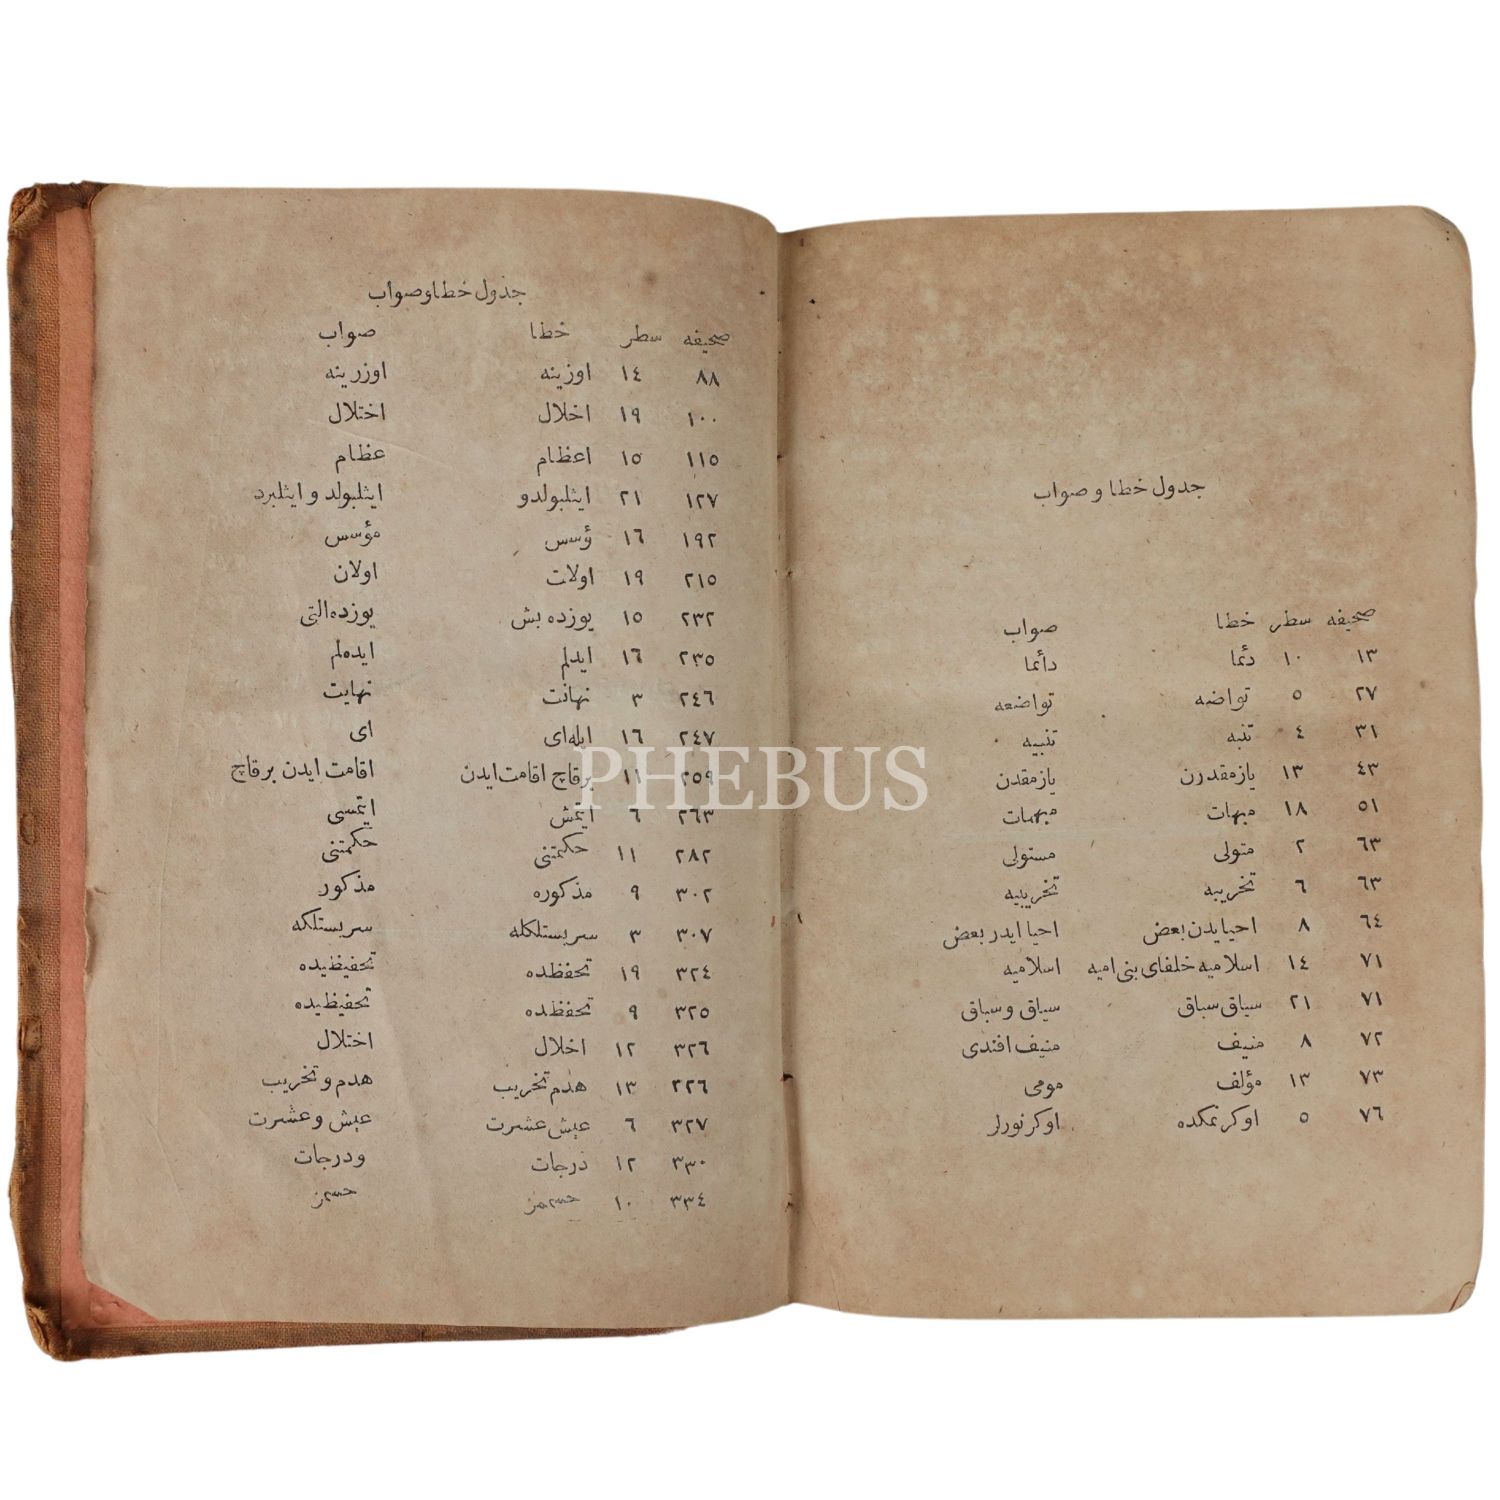 جدول خطا و صواب
صحیفه سطر خطا صواب
١٣ ١٠ دئما دأئما
٢٧ ٥ تواضه تواضعه
٣١ ٤ تنبه تنبیه
٤٣ ١٣ یازمقدرن یازمقدن
٥١ ١٨ مبهات مبهمات
٦٣ ٢ متولی مستولی
٦٣ ٦ تخریبه تخریبیه
٦٤ ٨ احیایدن بعض احیا ایدر بعض
٧١ ١٤ اسلامیه خلفای بنی امیه اسلامیه
٧١ ٢١ سیاق سباق سیاق و سباق
٧٢ ٨ منیف منیف افندی
٧٣ ١٣ مؤلف مومی
٧٦ ٥ اوکرنمکده اوکرنورلر
جدول خطا و صواب
صحیفه سطر خطا صواب
٨٨ ١٤ اوزینه اوزرینه
١٠٠ ١٩ اخلال اختلال
١١٥ ١٥ اعظام عظام
١٢٧ ٢١ ایثلبولدو ایثلبولد و ایثلبرد
١٩٢ ١٦ ؤسس مؤسس
٢١٥ ١٩ اولات اولان
٢٣٢ ١٥ یوزده بش یوزده التی
٢٣٥ ١٦ ایدلم ایده‌لم
٢٤٦ ٣ نهانت نهایت
٢٤٧ ١٦ ایله‌ای ای
٢٥٩ ١١ برقاچ اقامت ایدن اقامت ایدن برقاچ
٢٦٣ ٦ ایتمش ایتمسی
٢٨٢ ١١ حکمتنی حکمتنی
٣٠٢ ٩ مذکوره مذکور
٣٠٧ ٣ سربستلکله سربستلکه
٣٢٤ ١٩ تحفظده تحفیظیده
٣٢٥ ٩ تحفظده تحفیظیده
٣٢٦ ١٢ اخلال اختلال
٢٢٦ ١٣ هدم تخریب هدم و تخریب
٣٢٧ ٦ عیش عشرت عیش و عشرت
٣٣٠ ١٢ درجات و درجات
٣٣٤ ١٠
PHEBUS